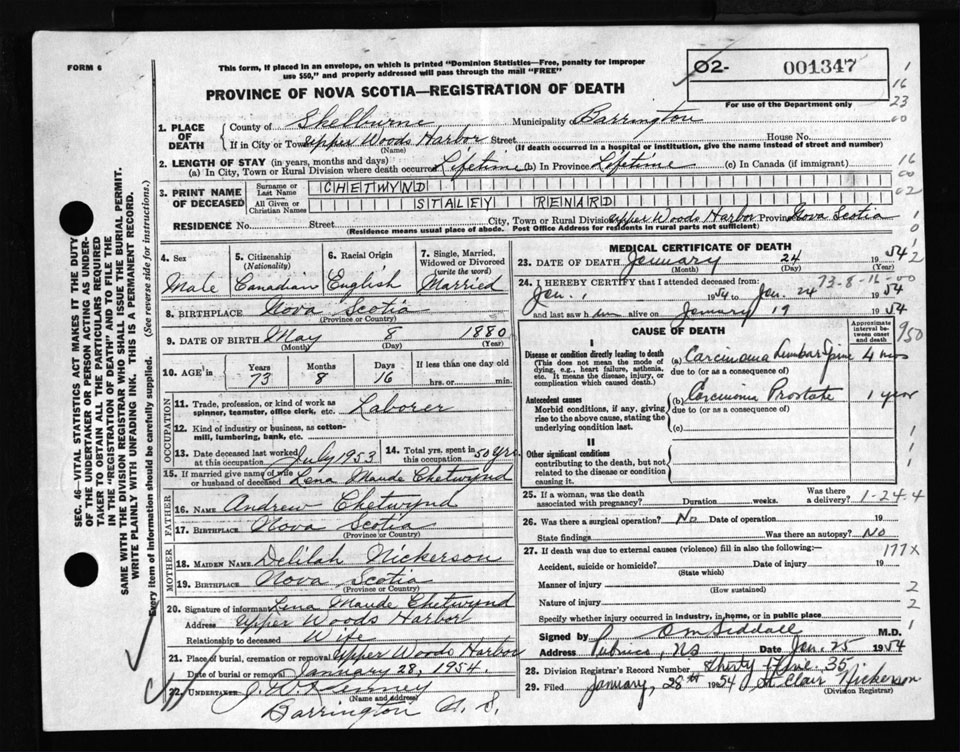 FORM 6
This form, if placed in an envelope, on which is printed "Dominion Statistics—Free, penalty for improper
use $50," and properly addressed will pass through the mail "FREE"
PROVINCE OF NOVA SCOTIA—REGISTRATION OF DEATH
02- 001347
For use of the Department only
1
16
23
00
1. PLACE OF DEATH
County of Shelburne Municipality of Barrington
If in City or Town Upper Woods Harbor Street House No.
(Name) (If death occurred in a hospital or institution, give the name instead of street and number)
2. LENGTH OF STAY (in years, months and days)
(a) In City, Town or Rural Division where death occurred Lifetime (b) In Province Lifetime (c) In Canada (if immigrant)
16
00
02
3. PRINT NAME OF DECEASED
Surname or Last Name CHETWYND
All Given or Christian Names STALEY RENARD
RESIDENCE No. Street City, Town or Rural Division Upper Woods Harbor Province Nova Scotia
(Residence means usual place of abode. Post Office Address for residents in rural parts not sufficient)
1
0
2
4. Sex
Male
5. Citizenship
(Nationality)
Canadian
6. Racial Origin
English
7. Single, Married, Widowed or Divorced
(write the word)
Married
8. BIRTHPLACE Nova Scotia
(Province or Country)
9. DATE OF BIRTH May 8 1880
(Month) (Day) (Year)
10. AGE in Years Months Days If less than one day
73 8 16 hrs. or min.
OCCUPATION
11. Trade, profession, or kind of work as spinner, teamster, office clerk, etc. Laborer
12. Kind of industry or business, as cotton-mill, lumbering, bank, etc.
13. Date deceased last worked at this occupation July 1953
14. Total yrs. spent in this occupation 50 yrs.
15. If married give name of wife or husband of deceased Lena Maude Chetwynd
FATHER
16. NAME Andrew Chetwynd
17. BIRTHPLACE Nova Scotia
(Province or Country)
MOTHER
18. MAIDEN NAME Delilah Nickerson
19. BIRTHPLACE Nova Scotia
(Province or Country)
20. Signature of informant Lena Maude Chetwynd
Address Upper Woods Harbor
Relationship to deceased Wife
21. Place of burial, cremation or removal Upper Woods Harbor
Date of burial or removal January 28, 1954.
22. UNDERTAKER J. W. Kenney
(Name and address)
Barrington N. S.
MEDICAL CERTIFICATE OF DEATH
23. DATE OF DEATH January 24 19 54
(Month) (Day) (Year)
24. I HEREBY CERTIFY that I attended deceased from: 73-8-16-00
Jan. 1 19 54 to Jan. 24 19 54
and last saw h im alive on January 19 19 54
CAUSE OF DEATH
Approximate interval between onset and death
950
I
Disease or condition directly leading to death
(This does not mean the mode of dying, e.g., heart failure, asthenia, etc. It means the disease, injury, or complication which caused death.)
(a) Carcinoma Lumbar Spine 4 mos
due to (or as a consequence of)
Antecedent causes
Morbid conditions, if any, giving rise to the above cause, stating the underlying condition last.
(b) Carcinoma Prostate 1 year
due to (or as a consequence of)
(c)
II
Other significant conditions
contributing to the death, but not related to the disease or condition causing it.
1
1
1
25. If a woman, was the death associated with pregnancy? Duration weeks. Was there a delivery? 1-24-4
26. Was there a surgical operation? No Date of operation 19
State findings Was there an autopsy? No
27. If death was due to external causes (violence) fill in also the following:— 177X
Accident, suicide or homicide? Date of injury 19
(State which)
Manner of injury 2
(How sustained)
Nature of injury 2
Specify whether injury occurred in industry, in home, or in public place
Signed by O M Siddall M.D. 1
Address Pubnico, NS Date Jan. 25 1954
28. Division Registrar's Record Number Thirty Five. 35
29. Filed January, 28th 1954 St. Clair Nickerson
(Division Registrar)
SEC. 46—VITAL STATISTICS ACT MAKES IT THE DUTY
OF THE UNDERTAKER OR PERSON ACTING AS UNDER-
TAKER TO OBTAIN ALL THE PARTICULARS REQUIRED
IN THE "REGISTRATION OF DEATH" AND TO FILE THE
SAME WITH THE DIVISION REGISTRAR WHO SHALL ISSUE THE BURIAL PERMIT.
WRITE PLAINLY WITH UNFADING INK. THIS IS A PERMANENT RECORD.
Every item of information should be carefully supplied. (See reverse side for instructions.)